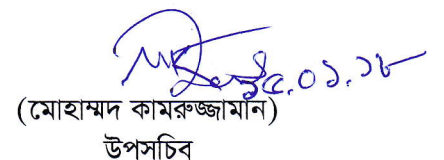 ১৫.০১.১৮
(মোহাম্মদ কামরুজ্জামান)
উপসচিব